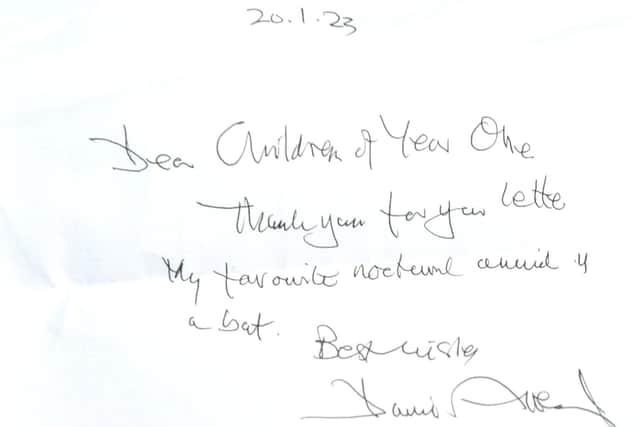 20.1.23
Dear Children of Year One
Thank you for your letter
My favourite nocturnal animal is
a bat.
Best wishes
David